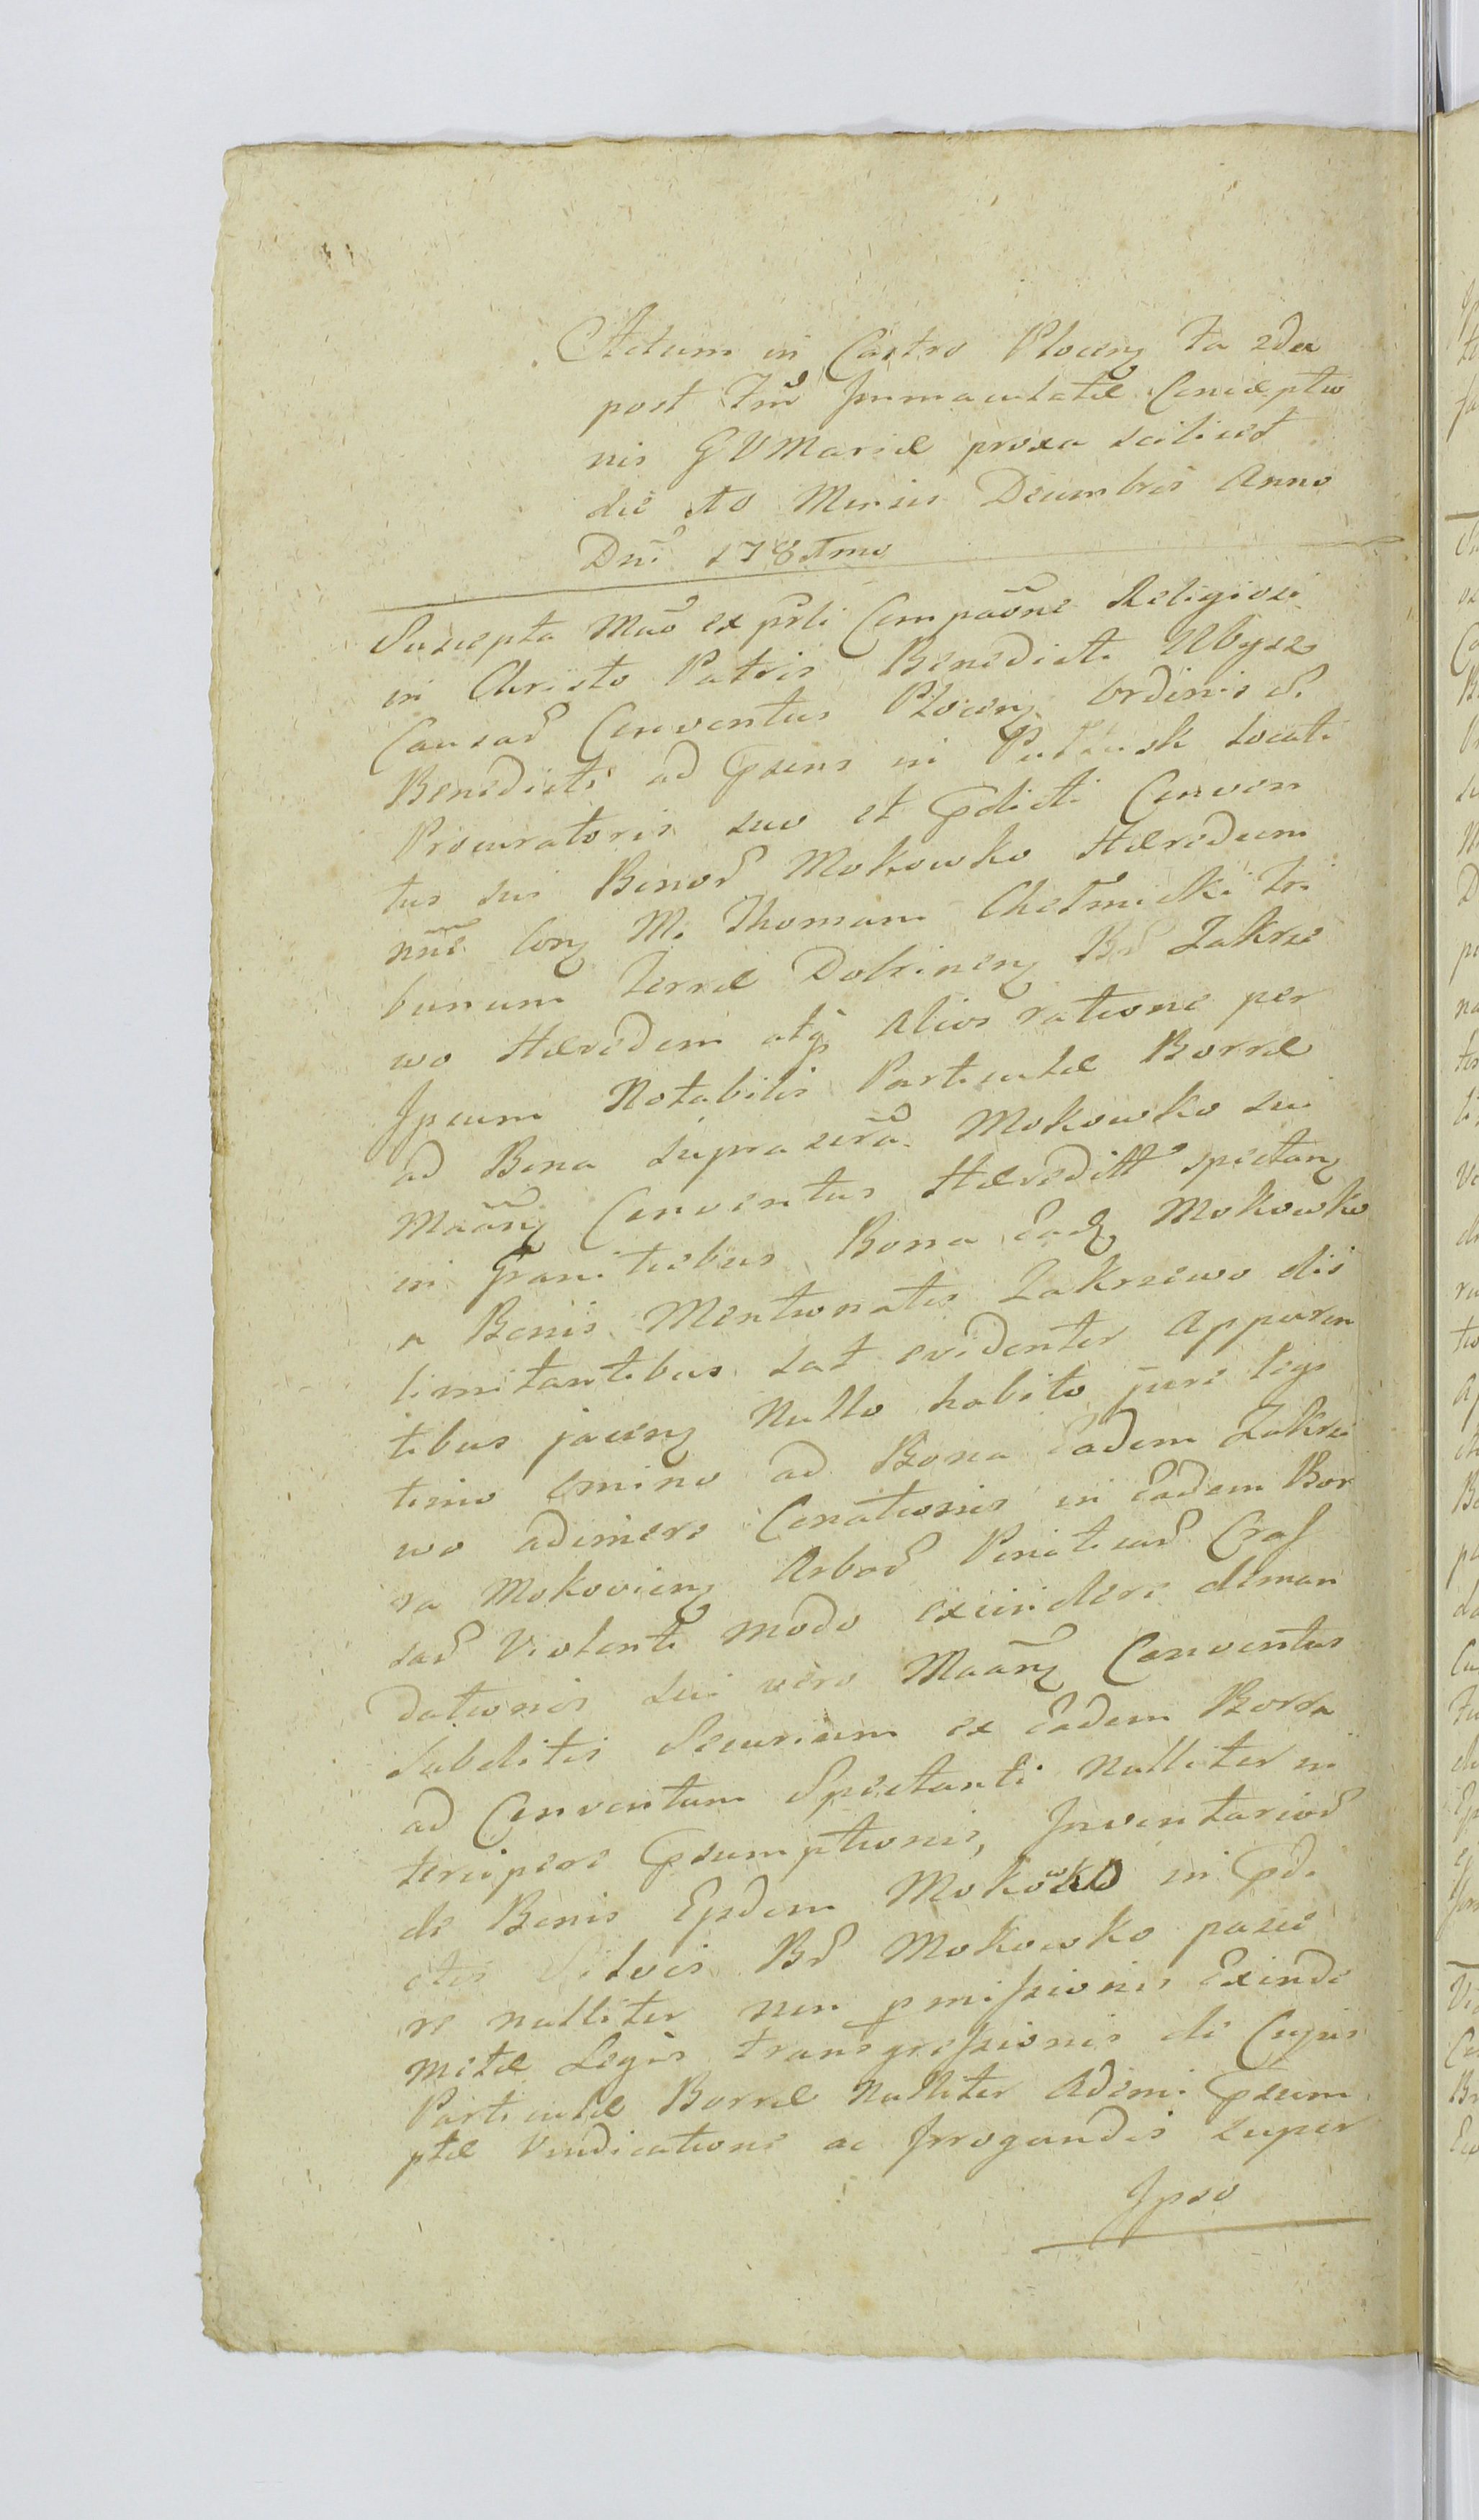 Actum in Castro Plocen fa 2da
post Fm Immaculatæ Conceptio
nis GVMariæ proxa scilicet
die 10 Mensis Decembris Anno
Dni 178
Suscepta Mao ex psli Compaone Religiosi
in Christo Patris Benedicti Ubysz
Causar Conventus Plocen Ordinis S.
Benedicti ad præsens in Pułtusk locati
Procuratoris suo et prædicti Conven
tus sui Bonor Mokowko Hæredum
nne Con M. Thomam Chełmicki Tri
bunum Terræ Dobrinen Br Zakrze
wo Hæredem atq Alios ratione per
Ipsum Notabilis Particulæ Borræ
ad Bona suprascra Mokowko sui
Maan Conventus Hæreditt spectan
in Granitiebus Bona Ead Mokowko
a Bonis Mentionatis Zakrzewo dis
limitantibus sat evidenter Apparen
tibus jacen Nullo habito jure legi
timo omino ad Bona Eadem Zakrze
wo adimere Conationis in Eadem Bor
ra Mokovien Arbor Cras
sar Violenti modo excindere deman
dationis sui vero Maan Conventus
Subditis Securium ex Eadem Borra
ad Conventum Spectanti Nulliter in
tercipere præsumptionis, Inventarior
de Bonis Ejsdem Mokowko in prædi
ctis Silvis Br Mokowko pasce
re nulliter non pmissionis Exinde
metæ Legis transgressionis de Cujus
Particulæ Borræ Nulliter Adimi præsum
ptæ Vindicatione ac Irrogandis super
Ipso